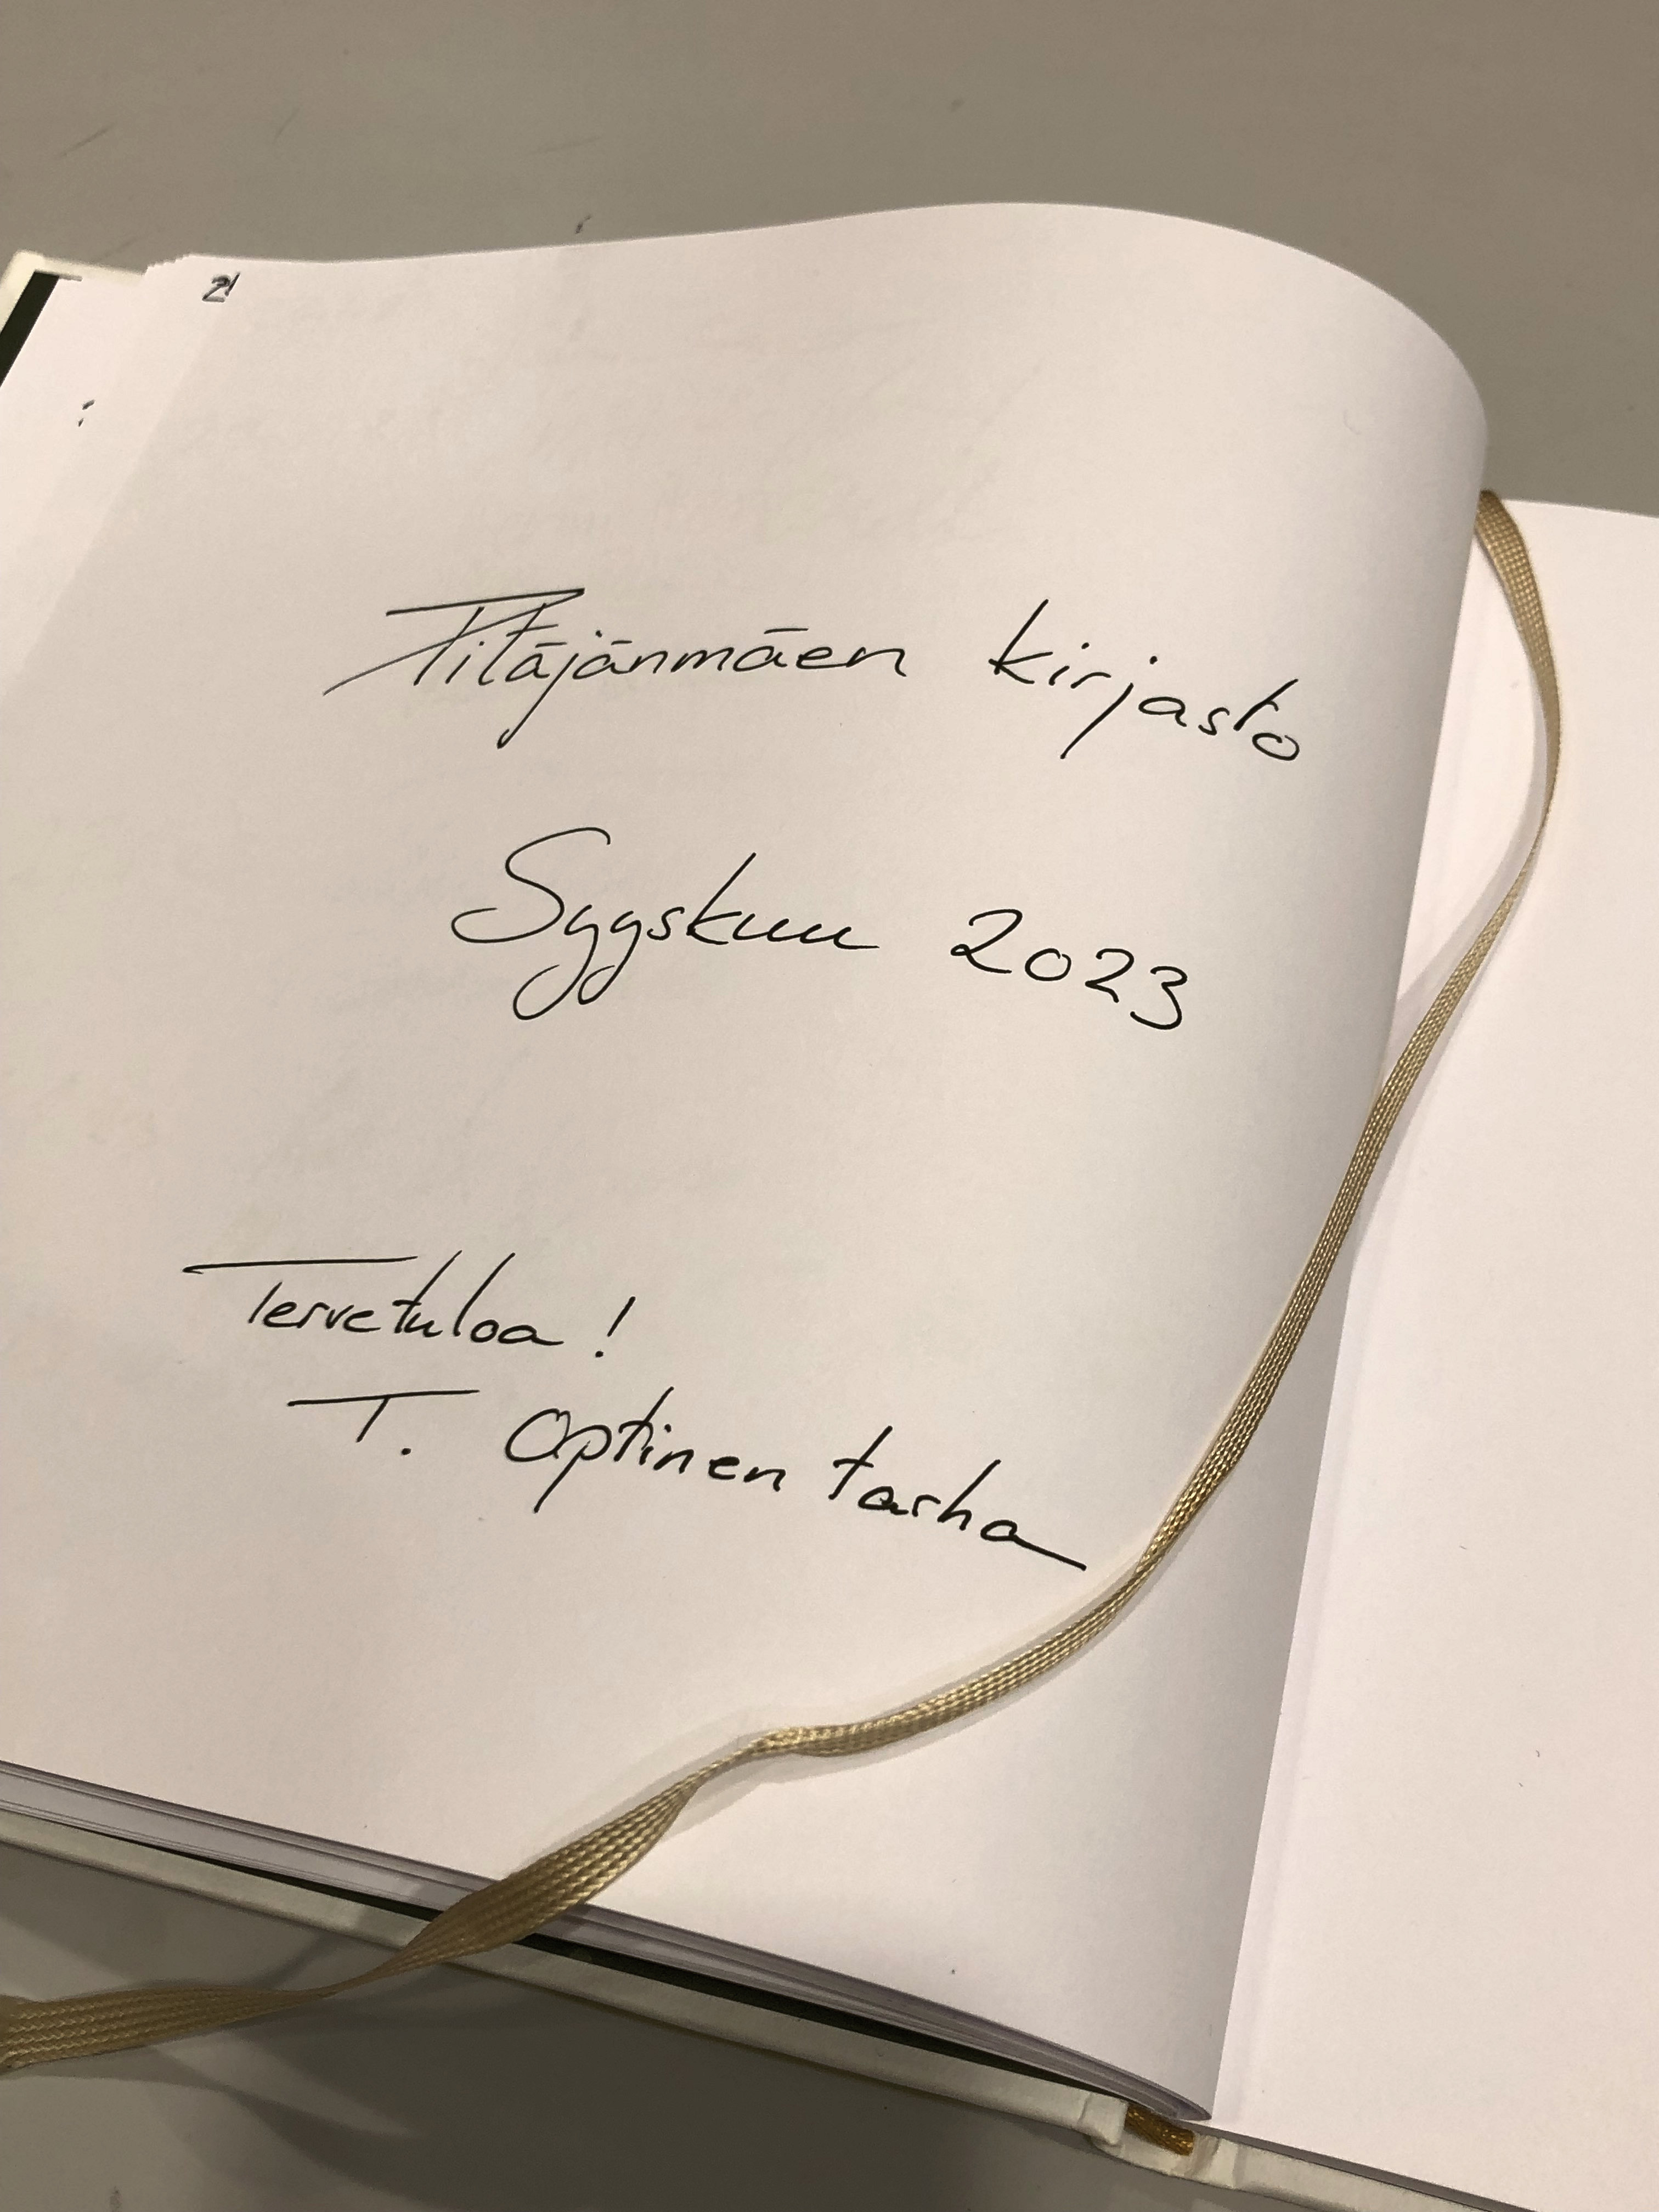 Pitäjänmäen kirjasto
Syyskuu 2023
Tervetuloa!
T. Optinen tarha